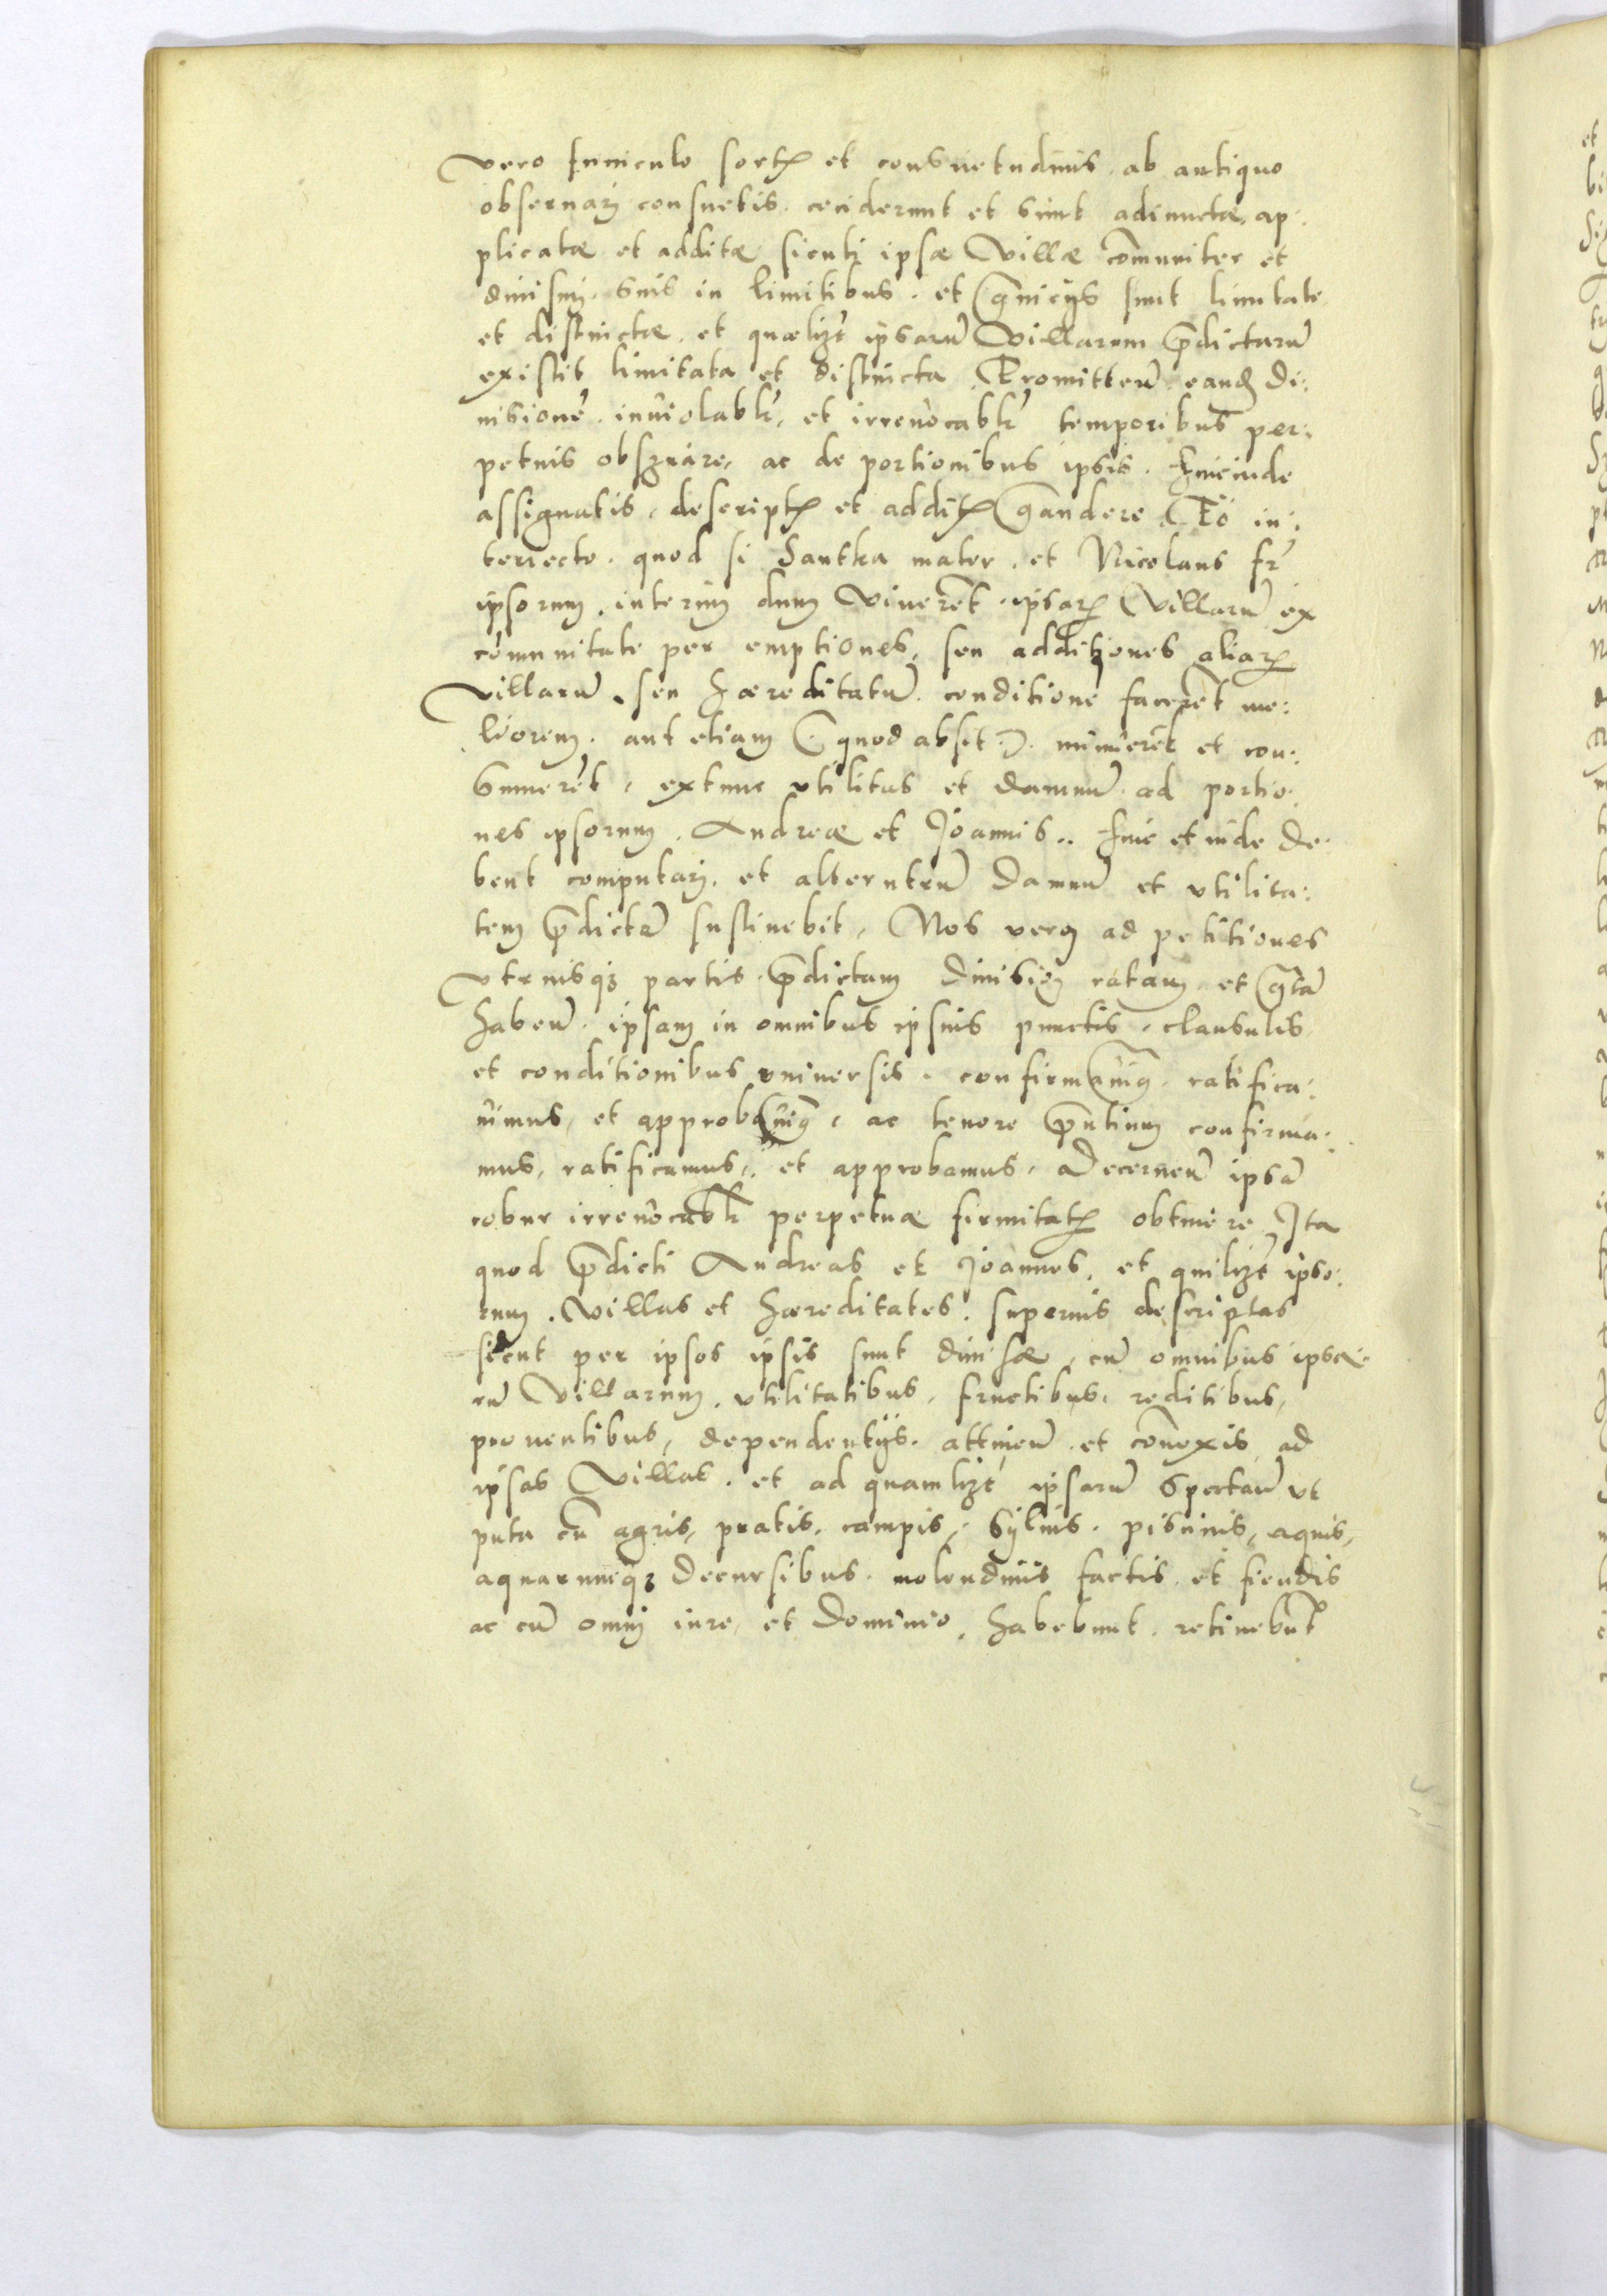 vero funiculo sortꝭ et consuetudinis. ab antiquo
obseruarj consuetis. ceciderunt et sunt adiunctæ. ap:
plicatæ et additæ sicutj ipsæ Villæ com̄uniter et
diuisim. suis in limitibus. et granicijs sunt limitate
et distinctæ. et quælizt ipsarū Villarum p̄dictarū
existit limitata et distincta. Promitteñ. eandē di:
uisionē. inuiolablr, et irreuocablr temporibus per:
petuis obsꝫuare, ac de portionibus ipsis. hincinde
assignatis, descriptꝭ et additꝭ gaudere. Eo in:
teriecto. quod si Santka mater. et Nicolaus fr̄
ipsorum. interim dum viuerēt. ipsarꝭ Villarū ex
com̄unitate per emptiones, seu additiones aliarꝭ
Villarū, seu hæreditatū. conditionē facerēt me:
liorem. aut etiam (: quod absit :). minuerēt et con:
sumerēt, extunc vtilitas et damnū ad portio:
nes ipsorum. Andreæ et Joannis.. hinc et inde de:
bent computarj. et alterutrū damnū et vtilita:
tem p̄dictā sustinebit, Nos vero ad petitiones
vtriusqꝫ partis p̄dictam diuisioñ ratam et grātā
habeñ. ipsam in omnibus ipsius punctis, clausulis
et conditionibus vniuersis. confirmauimꝰ. ratifica:
uimus, et approbauimꝰ, ac tenore p̄ntium confirma:
mus, ratificamus, et approbamus, decerneñ ipsā
robur irreuocablr perpetuæ firmitatꝭ obtinere. Ita
quod p̄dicti Andreas et Joannes, et quilizt ipso:
rum. Villas et hæreditates. superius descriptas
sicut per ipsos ipsis sunt diuisæ, cū omnibus ipsa:
rū Villarum. vtilitatibus, fructibus, reditibus,
prouentibus, dependentijs. attineñ. et con̄exis ad
ipsas Villas. et ad quamlizt ipsarū spectañ vt
puta cū agris, pratis, campis, syluis. piscinis, aquis,
aquarumqꝫ decursibus. molendinis factis et fiendis
ac cū omnj iure, et dominio. habebunt. retinebūt